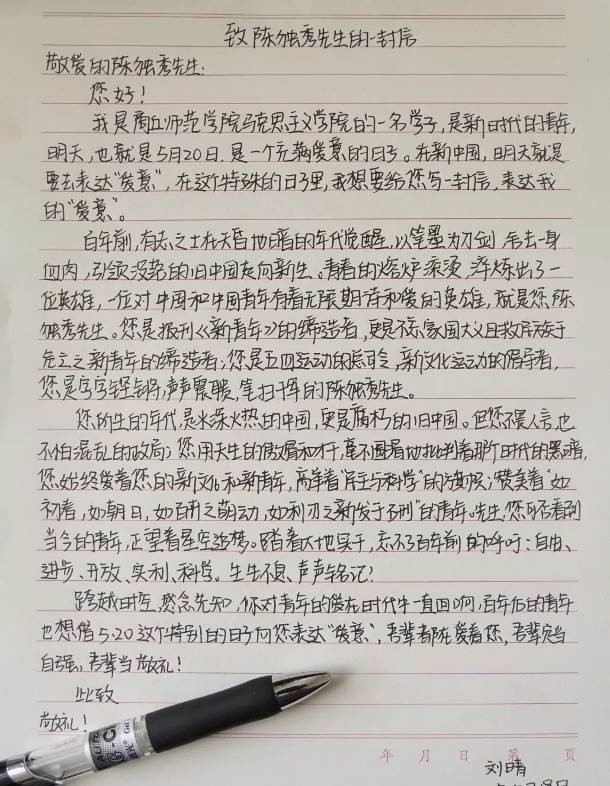 致陈独秀先生的一封信
敬爱的陈独秀先生:
您好!
我是商丘师范学院马克思主义学院的一名学子,是新时代的青年,
明天,也就是5月20日,是一个充满爱意的日子。在新中国,明天就是
要去表达“爱意”,在这个特殊的日子里,我想要给您写一封信,表达我
的“爱意”。
百年前,有志之士在天昏地暗的年代觉醒,以笔墨为刀剑,舍去一身
血肉,引领没落的旧中国走向新生。青春的熔炉滚烫,淬炼出了一
位英雄,一位对中国和中国青年有着无限期待和爱的英雄,就是您,陈
独秀先生。您是报刊《新青年》的缔造者,更是不忘家国大义且救民族于
危亡之新青年的缔造者;您是五四运动的总司令,新文化运动的倡导者,
您是字字铿锵,声声震耳,笔扫千军的陈独秀先生。
您所生的年代,是水深火热的中国,更是腐朽的旧中国。但您不畏人言,也
不怕混乱的政局;您用天生的傲眉和才,毫不图眉地批判着那个时代的黑暗,
您始终爱着您的新文化和新青年,高举着“民主与科学”的旗帜;赞美着“如
初春,如朝日,如百卉之萌动,如利刃之新发于硎”的青年。先生,您可否看到
当今的青年,正望着星空追梦。踏着大地实干,忘不了百年前的呼吁:自由、
进步、开放、实利、科学。生生不息、声声铭记!
跨越时空,感念先知,你对青年的爱在时代中一直回响,百年后的青年
也想借5.20这个特别的日子向您表达“爱意”,吾辈都在爱着您,吾辈定当
自强,吾辈当敬礼!
此致
敬礼!
年 月 日 第 页
刘晴